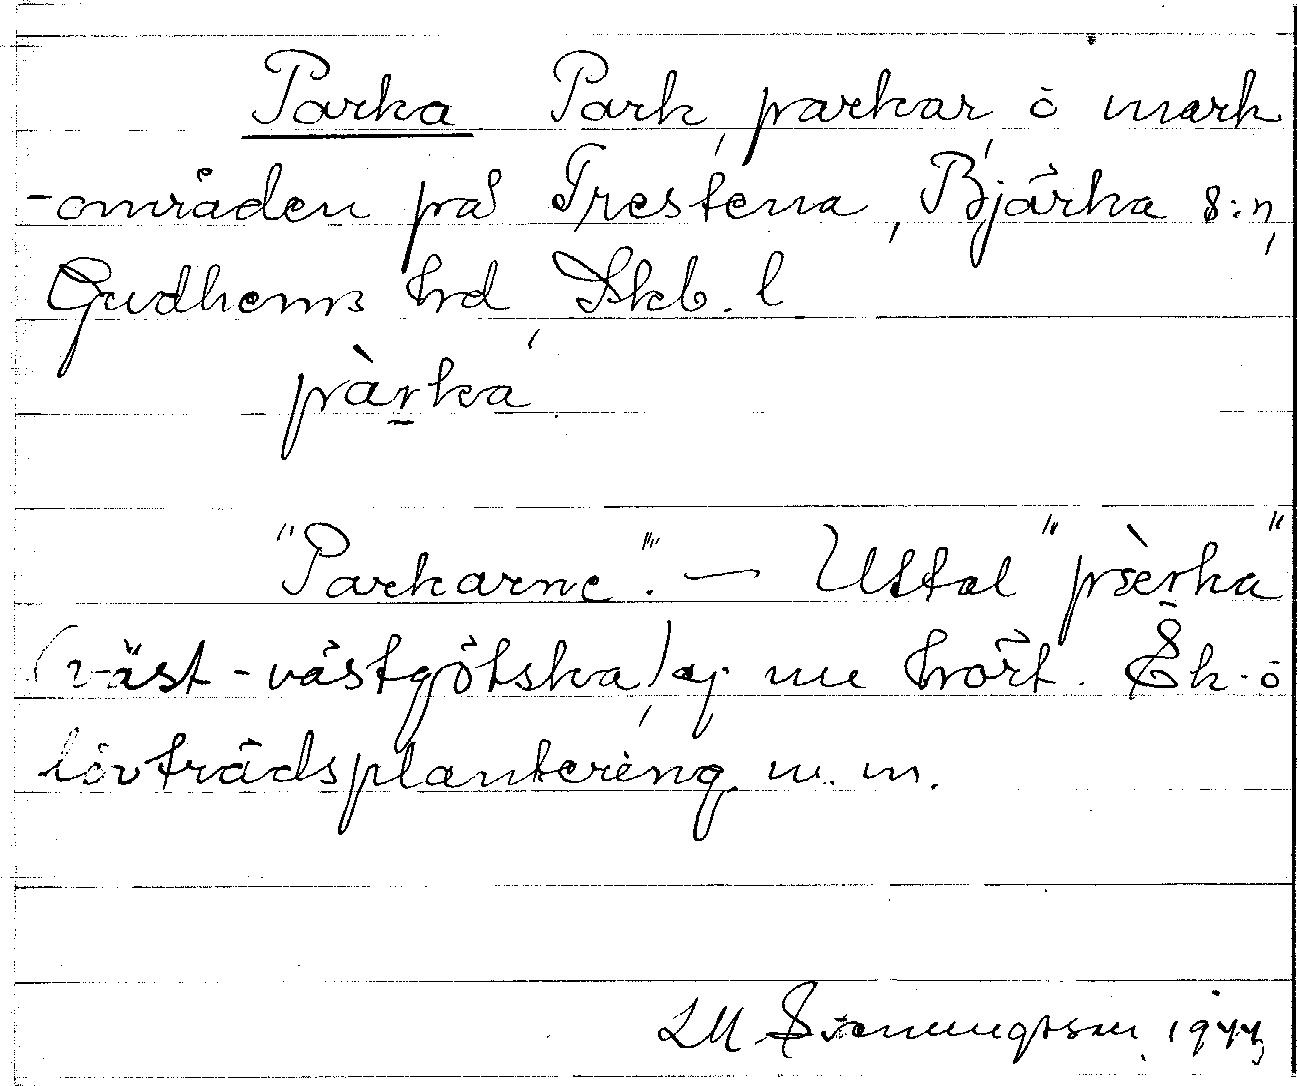 Parka Park, parkar, o mark
-områden på Trestena, Bjärka s:n,
Gudhems hd, Skb. l
pàrka
"Parkarne". — Uttal "pærka"
(väst-västgötska) ej nu hört. Ek- o
lövträdsplantering m. m.
LM Svenungsson, 1944